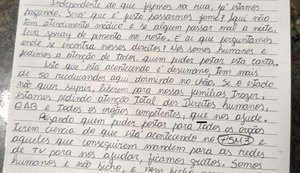 independente do que fizemos na rua, já estamos
pagando, Será que é justo passarmos fome? Aqui não
tem atendimento médico e se alguem passar mal a noite,
leva spray de pimenta no rosto. Ai que perguntamos
onde se encontra nossos direitos? Nós somos humanos e
pedimos a atenção de todos, quem puder postar esta carta.
Isto que esta acontecendo é desumano, tem mais
de 50 reeducandos aqui dormindo no chão. Se o estado
não quer suprir, liberem para nossas familias trazer.
Estamos pedindo atenção Total dos Direitos humanos,
OAB e todos os orgãos competentes, que nos ajude.
Pessoal quem puder postar para Todos os orgãos
Terem ciencia do que está acontecendo no (PSM3) e
aqueles que conseguirem mandem para as redes
de TV para nos ajudar, ficamos gratos. Somos
humanos e não bicho, e nem bicho